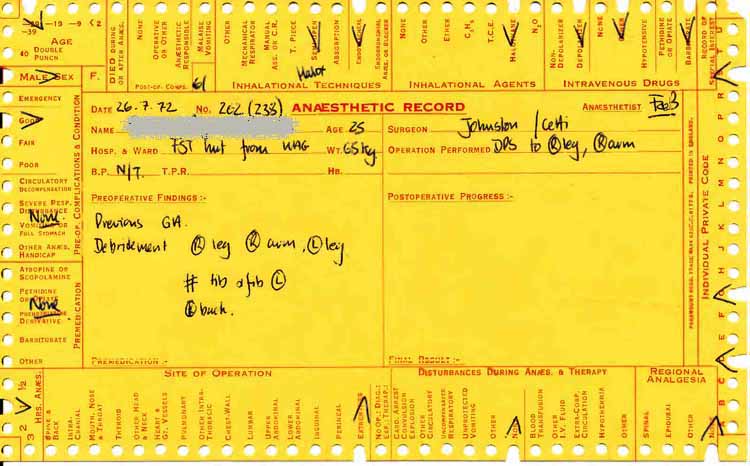 -19 -9 2
-39
AGE
40 DOUBLE
PUNCH
MALE SEX F.
DIED DURING OR AFTER ANÆS.
NONE
OPERATIVE OR OTHER
ANÆSTHETIC RESPONSIBLE
MALAISE VOMITING
OTHER
POST-OP. COMPS.
MECHANICAL RESPIRATOR
MANUAL ASS. OR C.R.
T. PIECE
SEMI-OPEN
ABSORPTION
ENDOTRACHEAL
ENDOBRONCHIAL ANÆS. OR BLOCKER
INHALATIONAL TECHNIQUES
NONE
OTHER
ETHER
C₃H₆
T.C.E.
HALOTHANE
N₂O
INHALATIONAL AGENTS
NON-DEPOLARIZER
DEPOLARIZER
NONE
OTHER
HYPOTENSIVE
PETHIDINE OR OPIATE
BARBITURATE
INTRAVENOUS DRUGS
RECORD OF SPECIAL INTEREST
DATE 26.7.72 No. 262 (238) ANÆSTHETIC RECORD ANÆSTHETIST
NAME AGE 25 SURGEON Johnston / Cetti
HOSP. & WARD FST hut from WAG WT. 65kg OPERATION PERFORMED DPS to Ⓡ leg, Ⓡ arm
B.P. N/T. T.P.R. HB.
PREOPERATIVE FINDINGS :- POSTOPERATIVE PROGRESS :-
Previous GA.
Debridement Ⓡ leg Ⓡ arm, Ⓛ leg
# tib & fib Ⓛ
Ⓡ back.
PREMEDICATION :- FINAL RESULT :-
EMERGENCY
GOOD
FAIR
POOR
CIRCULATORY DECOMPENSATION
SEVERE RESP. DISTURBANCE
None
VOMITING OR FULL STOMACH
OTHER ANÆS. HANDICAP
PRE-OP. COMPLICATIONS & CONDITION
ATROPINE OR SCOPOLAMINE
PETHIDINE OR OPIATE
None
PHENOTHIAZINE DERIVATIVE
BARBITURATE
OTHER
PREMEDICATION
INDIVIDUAL PRIVATE CODE
A B C D E F G H I J K L M N O P R S T U
HRS. ANÆS.
½ 1 2 3
SITE OF OPERATION
SPINE & BACK
INTRA-CRANIAL
MOUTH, NOSE & THROAT
THYROID
OTHER HEAD & NECK
HEART & GT. VESSELS
PULMONARY
OTHER INTRA-THORACIC
CHEST-WALL
LUMBAR
UPPER ABDOMINAL
LOWER ABDOMINAL
INGUINAL
PERINEAL
EXTREMITIES
DISTURBANCES DURING ANÆS. & THERAPY
NO OP.: DIAG.: EXP.: THERAP.:
CARD. ARREST CONVULSION EXPLOSION
OTHER CIRCULATORY
UNCOMPENSATED RESPIRATORY
UNPROTECTED VOMITING
OTHER
NONE
BLOOD TRANSFUSION
OTHER I.V. FLUID
EXTRA-CORP. CIRCULATION
HYPOTHERMIA
OTHER
REGIONAL ANALGESIA
SPINAL
EPIDURAL
OTHER